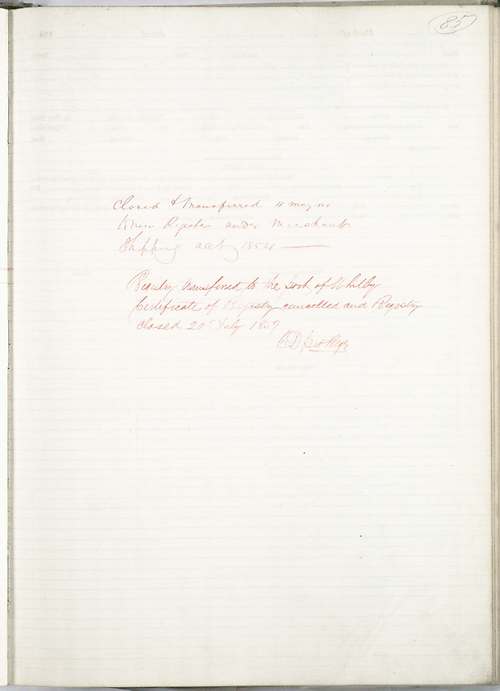 85
Closed & transferred
New Register under Merchant
Shipping act of 1854
Registry transferred to the Port of Whitby
Certificate of Registry cancelled and Registry
closed 20th July 18